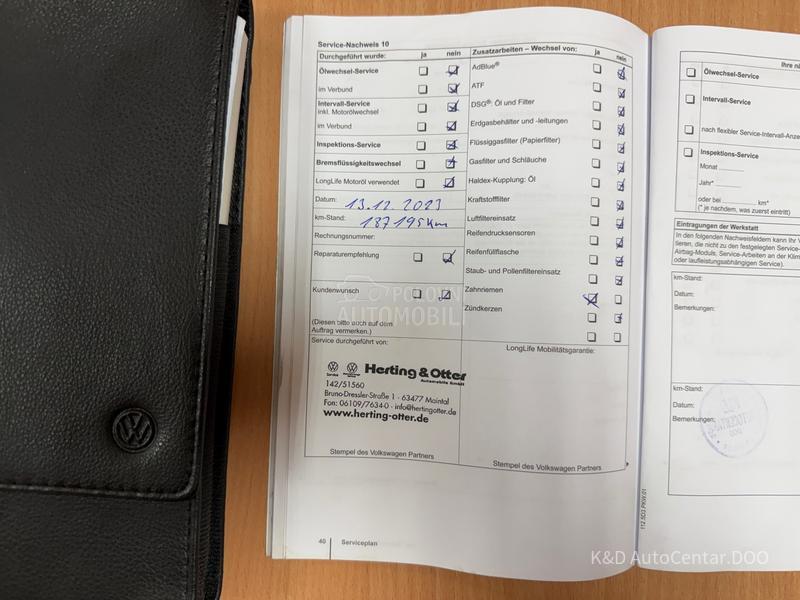 Service-Nachweis 10
Durchgeführt wurde: ja nein
Ölwechsel-Service
im Verbund
Intervall-Service
inkl. Motorölwechsel
im Verbund
Inspektions-Service
Bremsflüssigkeitswechsel
LongLife Motoröl verwendet
Datum: 13.12.2023
km-Stand: 187195km
Rechnungsnummer:
Reparaturempfehlung
Kundenwunsch
(Diesen bitte auch auf dem
Auftrag vermerken.)
Service durchgeführt von:
Herting & Otter
Automobile GmbH
142/51560
Bruno-Dressler-Straße 1 · 63477 Maintal
Fon: 06109/7634-0 · info@hertingotter.de
www.herting-otter.de
Stempel des Volkswagen Partners
Zusatzarbeiten – Wechsel von: ja nein
AdBlue®
ATF
DSG®: Öl und Filter
Erdgasbehälter und -leitungen
Flüssiggasfilter (Papierfilter)
Gasfilter und Schläuche
Haldex-Kupplung: Öl
Kraftstofffilter
Luftfiltereinsatz
Reifendrucksensoren
Reifenfüllflasche
Staub- und Pollenfiltereinsatz
Zahnriemen
Zündkerzen
LongLife Mobilitätsgarantie:
Stempel des Volkswagen Partners
40 Serviceplan
112.5D3.PKW.01
Ihre nä
Ölwechsel-Service
Intervall-Service
nach flexibler Service-Intervall-Anze
Inspektions-Service
Monat
Jahr*
oder bei km*
(* je nachdem, was zuerst eintritt)
Eintragungen der Werkstatt
In den folgenden Nachweisfeldern kann Ihr V
tieren, die nicht zu den festgelegten Service-
Airbag-Moduls, Service-Arbeiten an der Klim
oder laufleistungsabhängigen Service).
km-Stand:
Datum:
Bemerkungen:
km-Stand:
Datum:
Bemerkungen:
POLOVNI
AUTOMOBILI
K&D AutoCentar.DOO